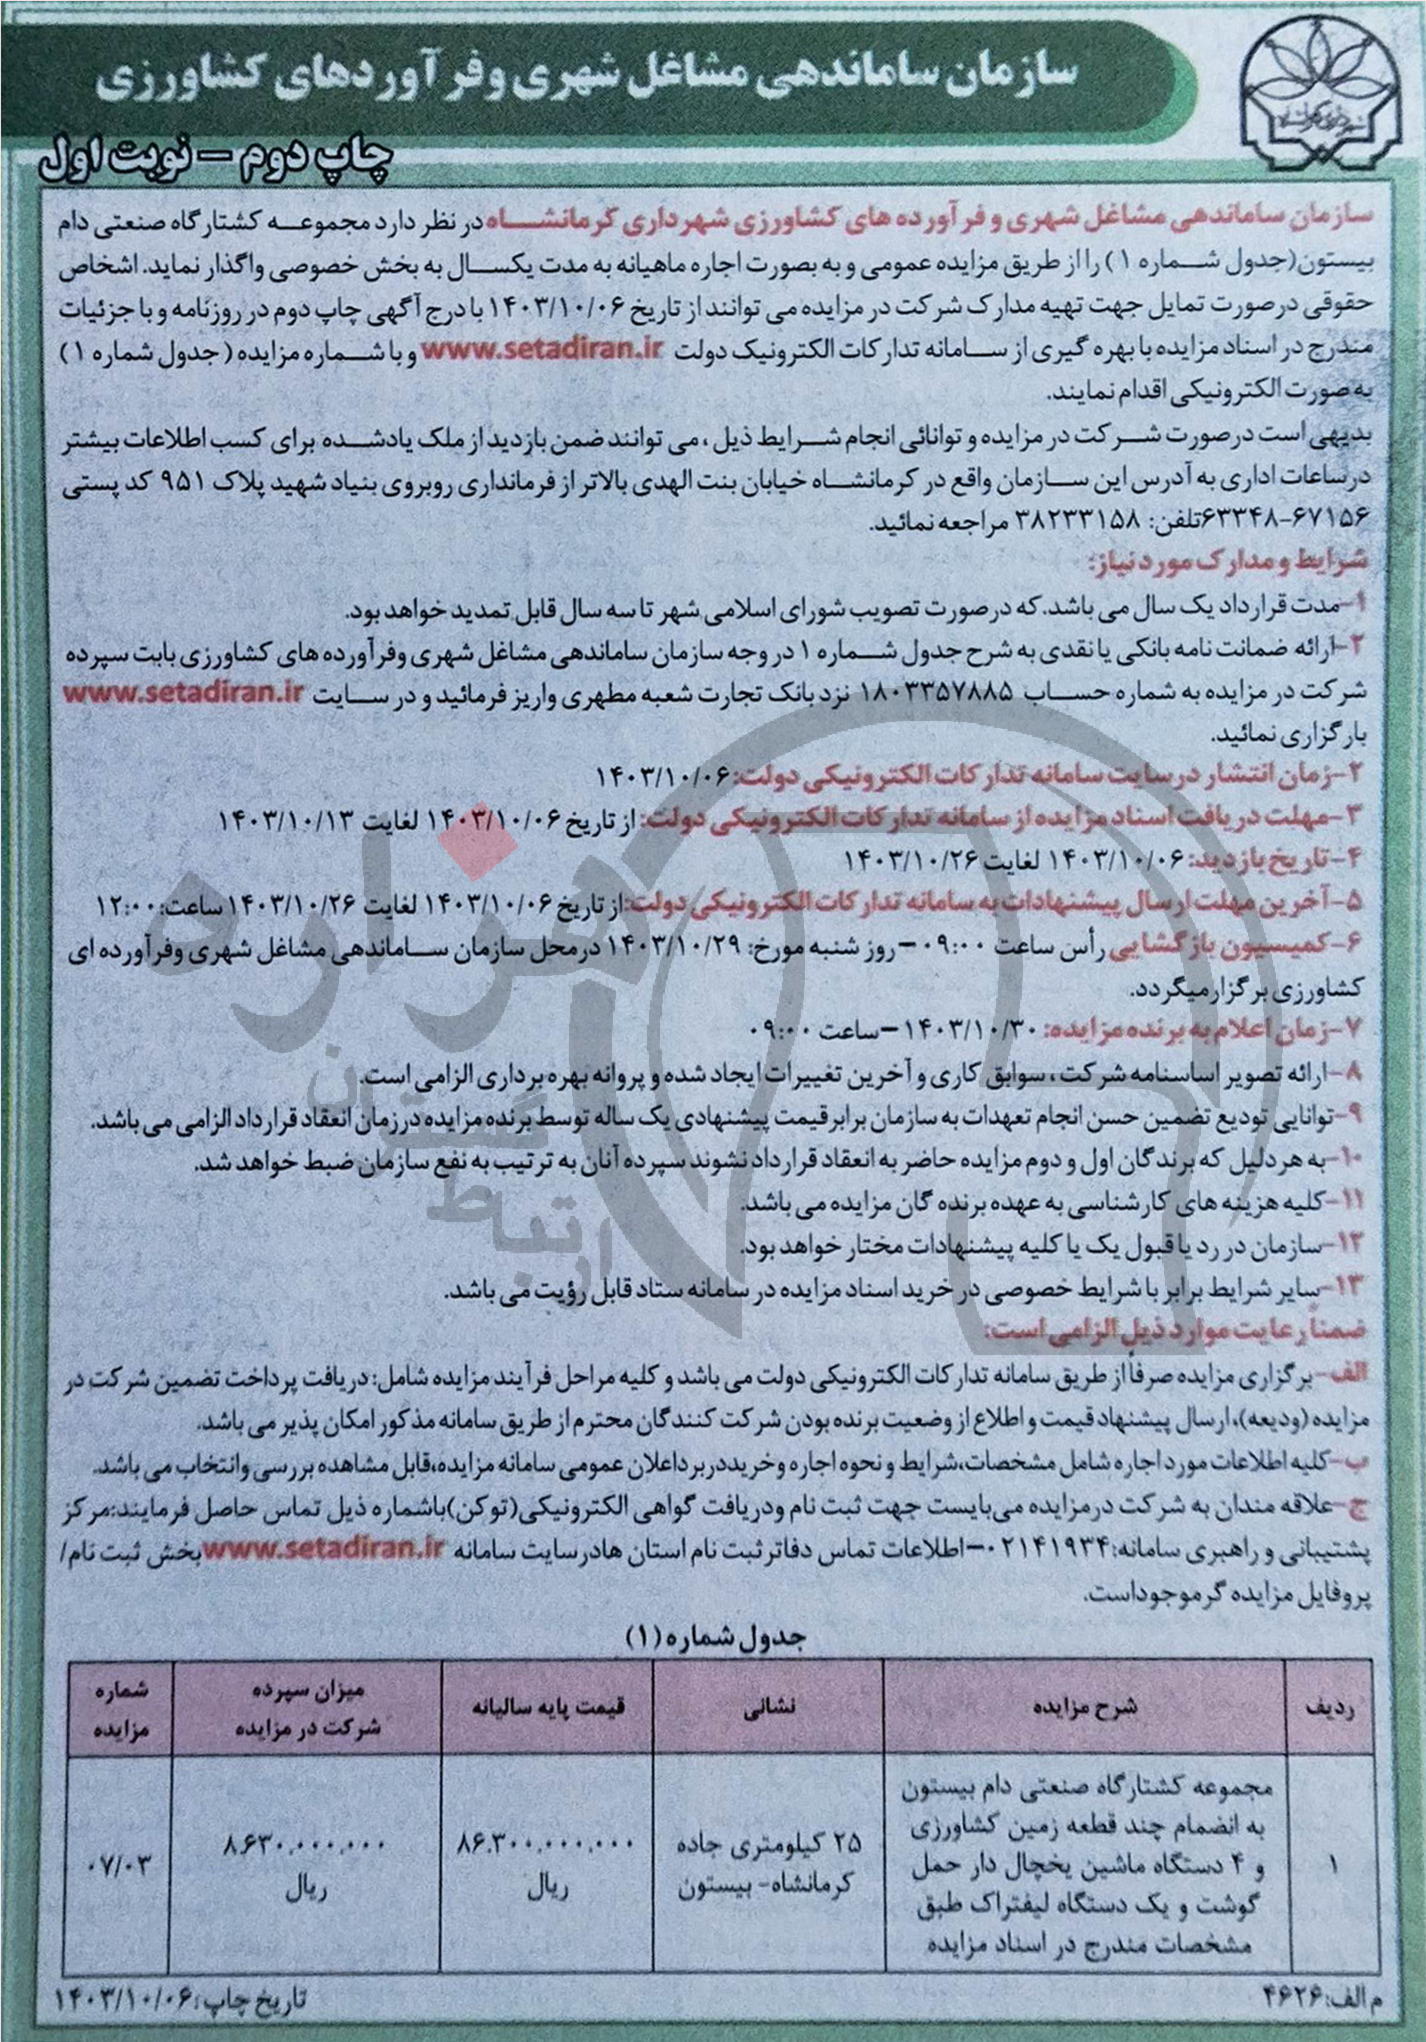 سازمان ساماندهی مشاغل شهری وفرآوردهای کشاورزی
چاپ دوم – نوبت اول
سازمان ساماندهی مشاغل شهری و فرآورده های کشاورزی شهرداری کرمانشاه در نظر دارد مجموعه کشتارگاه صنعتی دام
بیستون(جدول شماره ۱) را از طریق مزایده عمومی و به بصورت اجاره ماهیانه به مدت یکسال به بخش خصوصی واگذار نماید. اشخاص
حقوقی درصورت تمایل جهت تهیه مدارک شرکت در مزایده می توانند از تاریخ ۱۴۰۳/۱۰/۰۶ با درج آگهی چاپ دوم در روزنامه و با جزئیات
مندرج در اسناد مزایده با بهره گیری از سامانه تدارکات الکترونیک دولت www.setadiran.ir و با شماره مزایده ( جدول شماره ۱)
به صورت الکترونیکی اقدام نمایند.
بدیهی است درصورت شرکت در مزایده و توانائی انجام شرایط ذیل ، می توانند ضمن بازدید از ملک یادشده برای کسب اطلاعات بیشتر
درساعات اداری به آدرس این سازمان واقع در کرمانشاه خیابان بنت الهدی بالاتر از فرمانداری روبروی بنیاد شهید پلاک ۹۵۱ کد پستی
۶۷۱۵۶-۶۳۳۴۸تلفن: ۳۸۲۳۳۱۵۸ مراجعه نمائید.
شرایط و مدارک مورد نیاز:
۱-مدت قرارداد یک سال می باشد.که درصورت تصویب شورای اسلامی شهر تا سه سال قابل تمدید خواهد بود.
۲-ارائه ضمانت نامه بانکی یا نقدی به شرح جدول شماره ۱ در وجه سازمان ساماندهی مشاغل شهری وفرآورده های کشاورزی بابت سپرده
شرکت در مزایده به شماره حساب ۱۸۰۳۳۵۷۸۸۵ نزد بانک تجارت شعبه مطهری واریز فرمائید و در سایت www.setadiran.ir
بارگزاری نمائید.
۲-زمان انتشار درسایت سامانه تدارکات الکترونیکی دولت: ۱۴۰۳/۱۰/۰۶
۳-مهلت دریافت اسناد مزایده از سامانه تدارکات الکترونیکی دولت: از تاریخ ۱۴۰۳/۱۰/۰۶ لغایت ۱۴۰۳/۱۰/۱۳
۴-تاریخ بازدید: ۱۴۰۳/۱۰/۰۶ لغایت ۱۴۰۳/۱۰/۲۶
۵-آخرین مهلت ارسال پیشنهادات به سامانه تدارکات الکترونیکی دولت:از تاریخ ۱۴۰۳/۱۰/۰۶ لغایت ۱۴۰۳/۱۰/۲۶ ساعت:۱۲:۰۰
۶-کمیسیون بازگشایی رأس ساعت ۰۹:۰۰ – روز شنبه مورخ: ۱۴۰۳/۱۰/۲۹ درمحل سازمان ساماندهی مشاغل شهری وفرآورده ای
کشاورزی برگزارمیگردد.
۷-زمان اعلام به برنده مزایده: ۱۴۰۳/۱۰/۳۰–ساعت ۰۹:۰۰
۸-ارائه تصویر اساسنامه شرکت ، سوابق کاری و آخرین تغییرات ایجاد شده و پروانه بهره برداری الزامی است.
۹-توانایی تودیع تضمین حسن انجام تعهدات به سازمان برابر قیمت پیشنهادی یک ساله توسط برنده مزایده درزمان انعقاد قرارداد الزامی می باشد.
۱۰-به هر دلیل که برندگان اول و دوم مزایده حاضر به انعقاد قرارداد نشوند سپرده آنان به ترتیب به نفع سازمان ضبط خواهد شد.
۱۱-کلیه هزینه های کارشناسی به عهده برنده گان مزایده می باشد.
۱۲-سازمان در رد یا قبول یک یا کلیه پیشنهادات مختار خواهد بود.
۱۳-سایر شرایط برابر با شرایط خصوصی در خرید اسناد مزایده در سامانه ستاد قابل رؤیت می باشد.
ضمناً رعایت موارد ذیل الزامی است:
الف-برگزاری مزایده صرفاً از طریق سامانه تدارکات الکترونیکی دولت می باشد و کلیه مراحل فرآیند مزایده شامل: دریافت پرداخت تضمین شرکت در
مزایده (ودیعه)، ارسال پیشنهاد قیمت و اطلاع از وضعیت برنده بودن شرکت کنندگان محترم از طریق سامانه مذکور امکان پذیر می باشد.
ب-کلیه اطلاعات مورد اجاره شامل مشخصات،شرایط و نحوه اجاره وخریددربرداعلان عمومی سامانه مزایده،قابل مشاهده بررسی وانتخاب می باشد.
ج-علاقه مندان به شرکت درمزایده می‌بایست جهت ثبت نام ودریافت گواهی الکترونیکی(توکن)باشماره ذیل تماس حاصل فرمایند:مرکز
پشتیبانی و راهبری سامانه:۰۲۱۴۱۹۳۴–اطلاعات تماس دفاترثبت نام استان هادرسایت سامانه www.setadiran.irبخش ثبت نام/
پروفایل مزایده گرموجوداست.
جدول شماره (۱)
ردیف شرح مزایده نشانی قیمت پایه سالیانه میزان سپرده شرکت در مزایده شماره مزایده
۱ مجموعه کشتارگاه صنعتی دام بیستون
به انضمام چند قطعه زمین کشاورزی
و ۴ دستگاه ماشین یخچال دار حمل
گوشت و یک دستگاه لیفتراک طبق
مشخصات مندرج در اسناد مزایده
۲۵ کیلومتری جاده
کرمانشاه- بیستون
۸۶.۳۰۰.۰۰۰.۰۰۰
ریال
۸.۶۳۰.۰۰۰.۰۰۰
ریال
۰۷/۰۳
م الف:۴۶۲۶
تاریخ چاپ:۱۴۰۳/۱۰/۰۶
هزاره
ارتباط